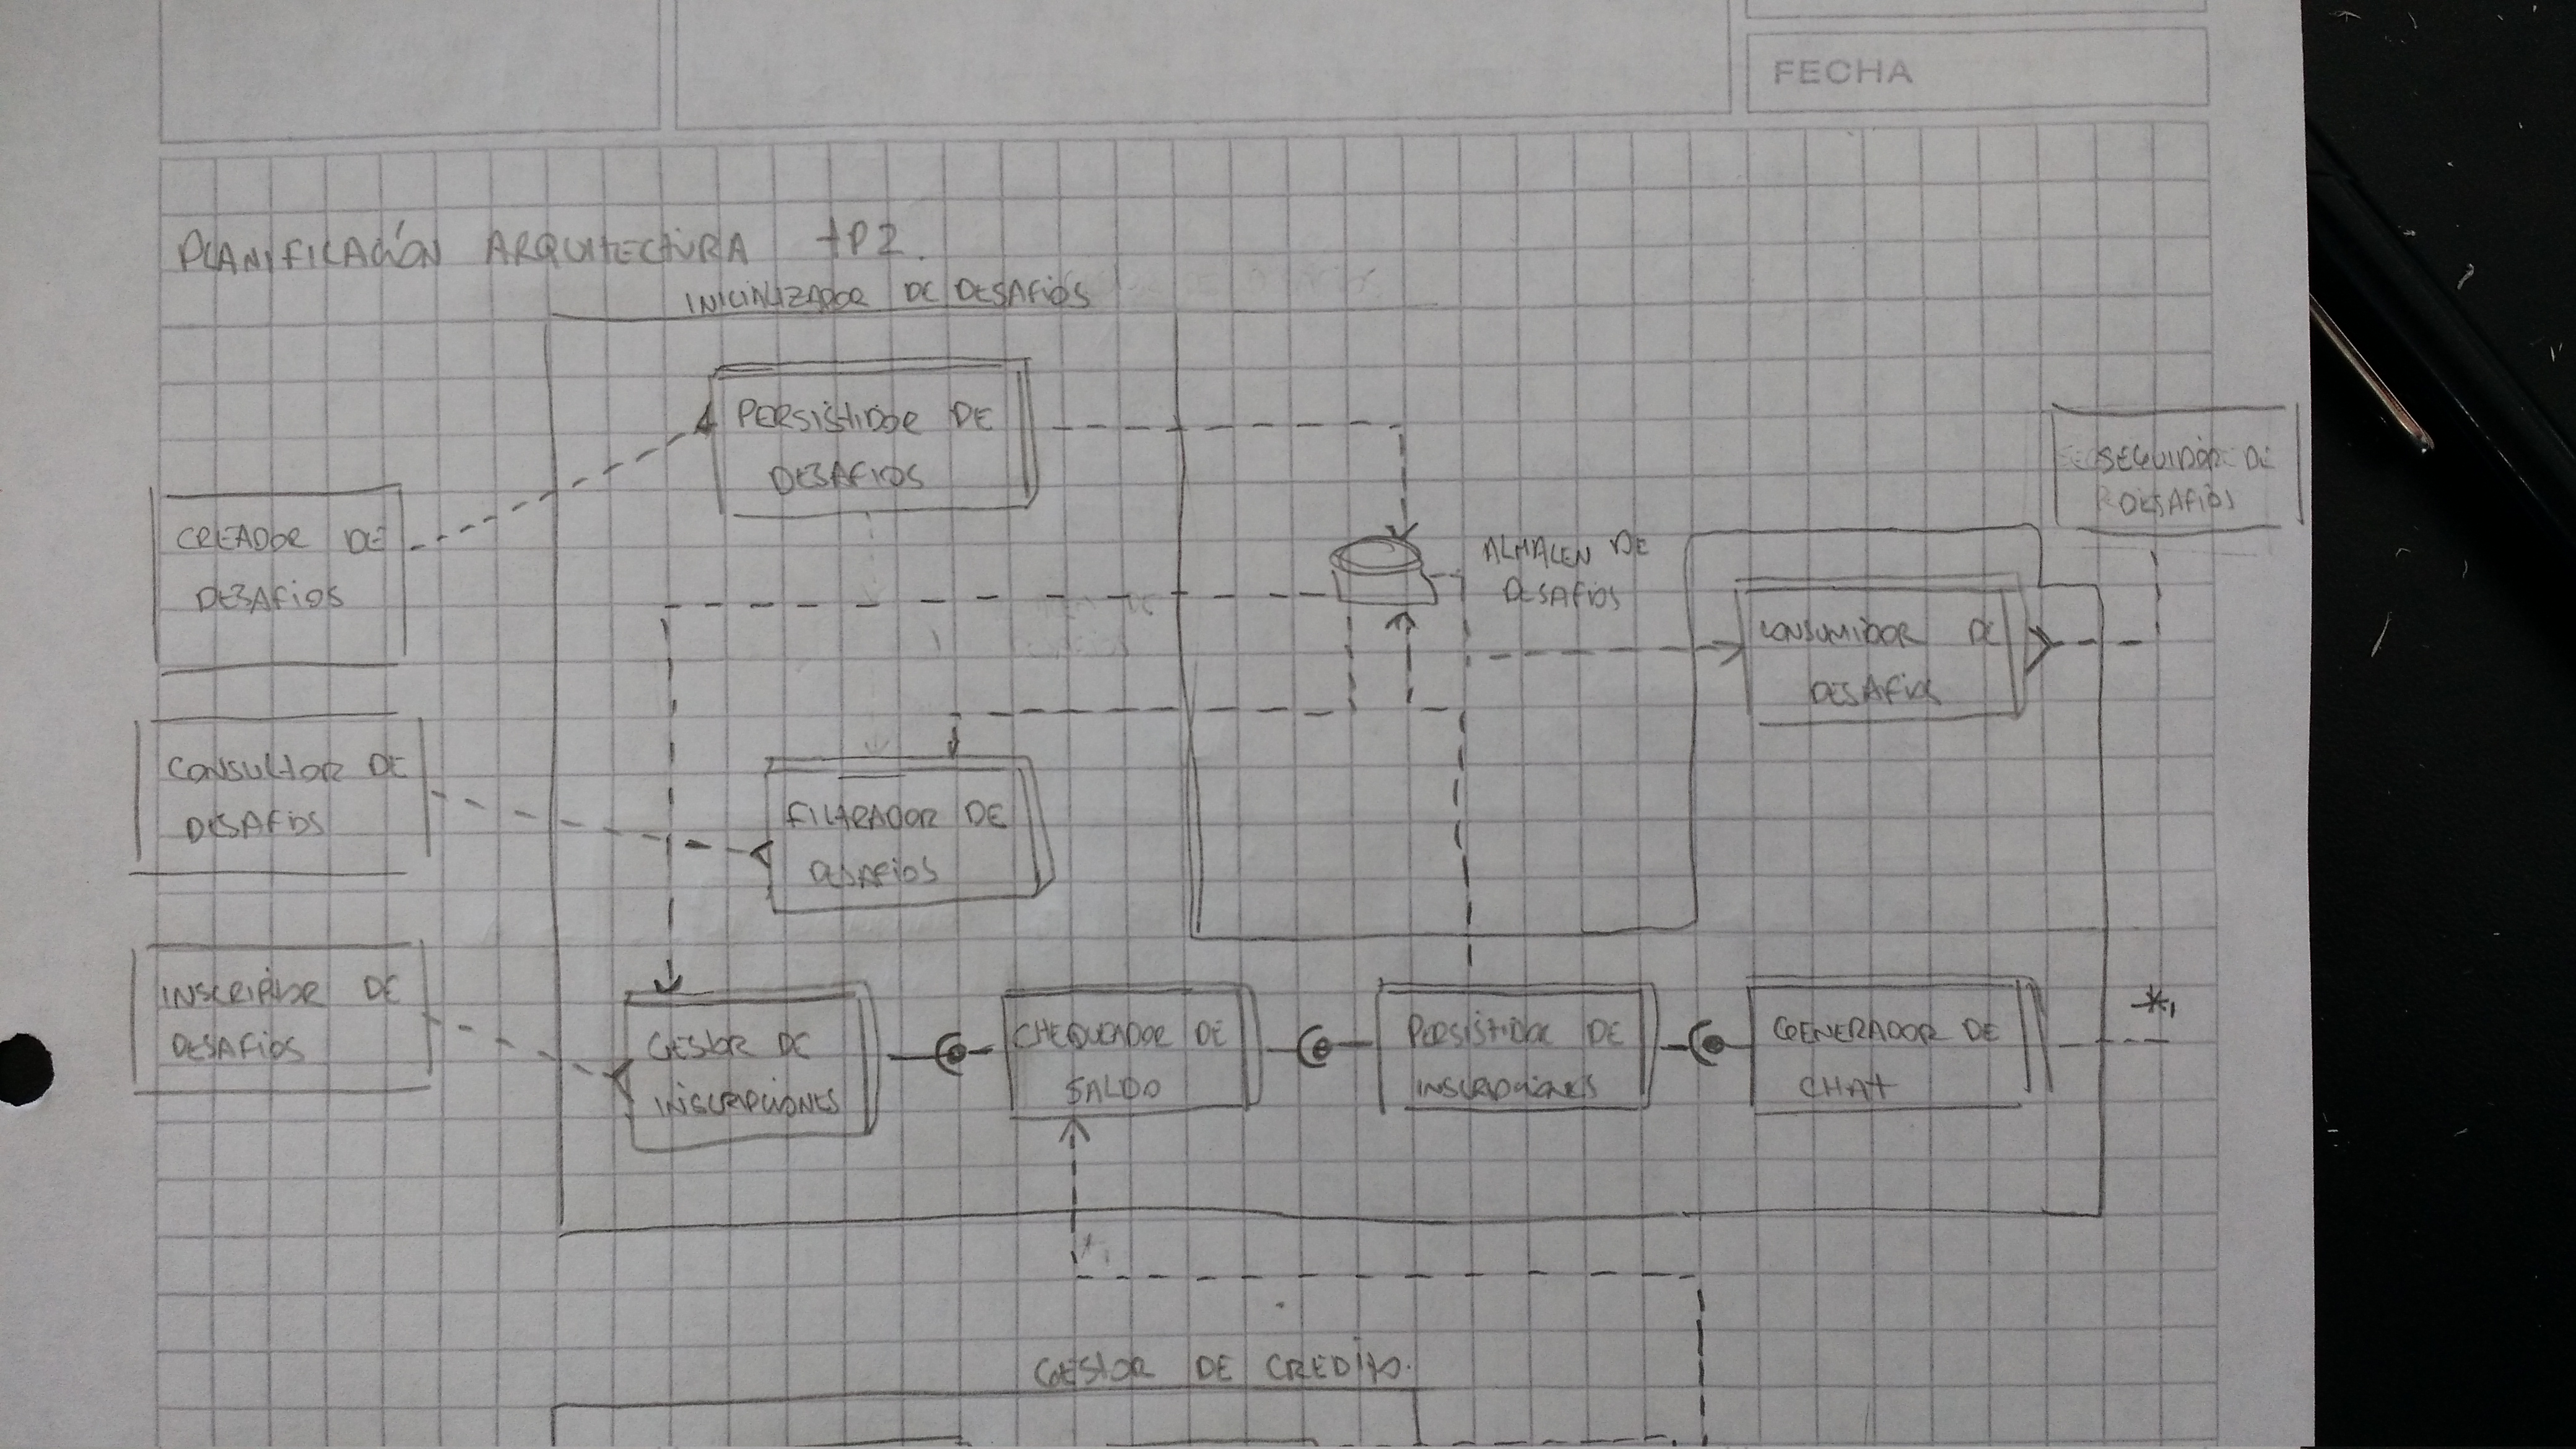 FECHA
PLANIFICACIÓN ARQUITECTURA TP2.
INICIALIZADOR DE DESAFIOS
PERSISTIDOR DE
DESAFIOS
SEGUIDOR DE
DESAFIOS
CREADOR DE
DESAFIOS
ALMACEN DE
DESAFIOS
CONSUMIDOR DE
DESAFIOS
CONSULTOR DE
DESAFIOS
FILTRADOR DE
DESAFIOS
INSCRIPTOR DE
DESAFIOS
GESTOR DE
INSCRIPCIONES
CHEQUEADOR DE
SALDO
PERSISTIDOR DE
INSCRIPCIONES
GENERADOR DE
CHAT
*1
GESTOR DE CREDITO.